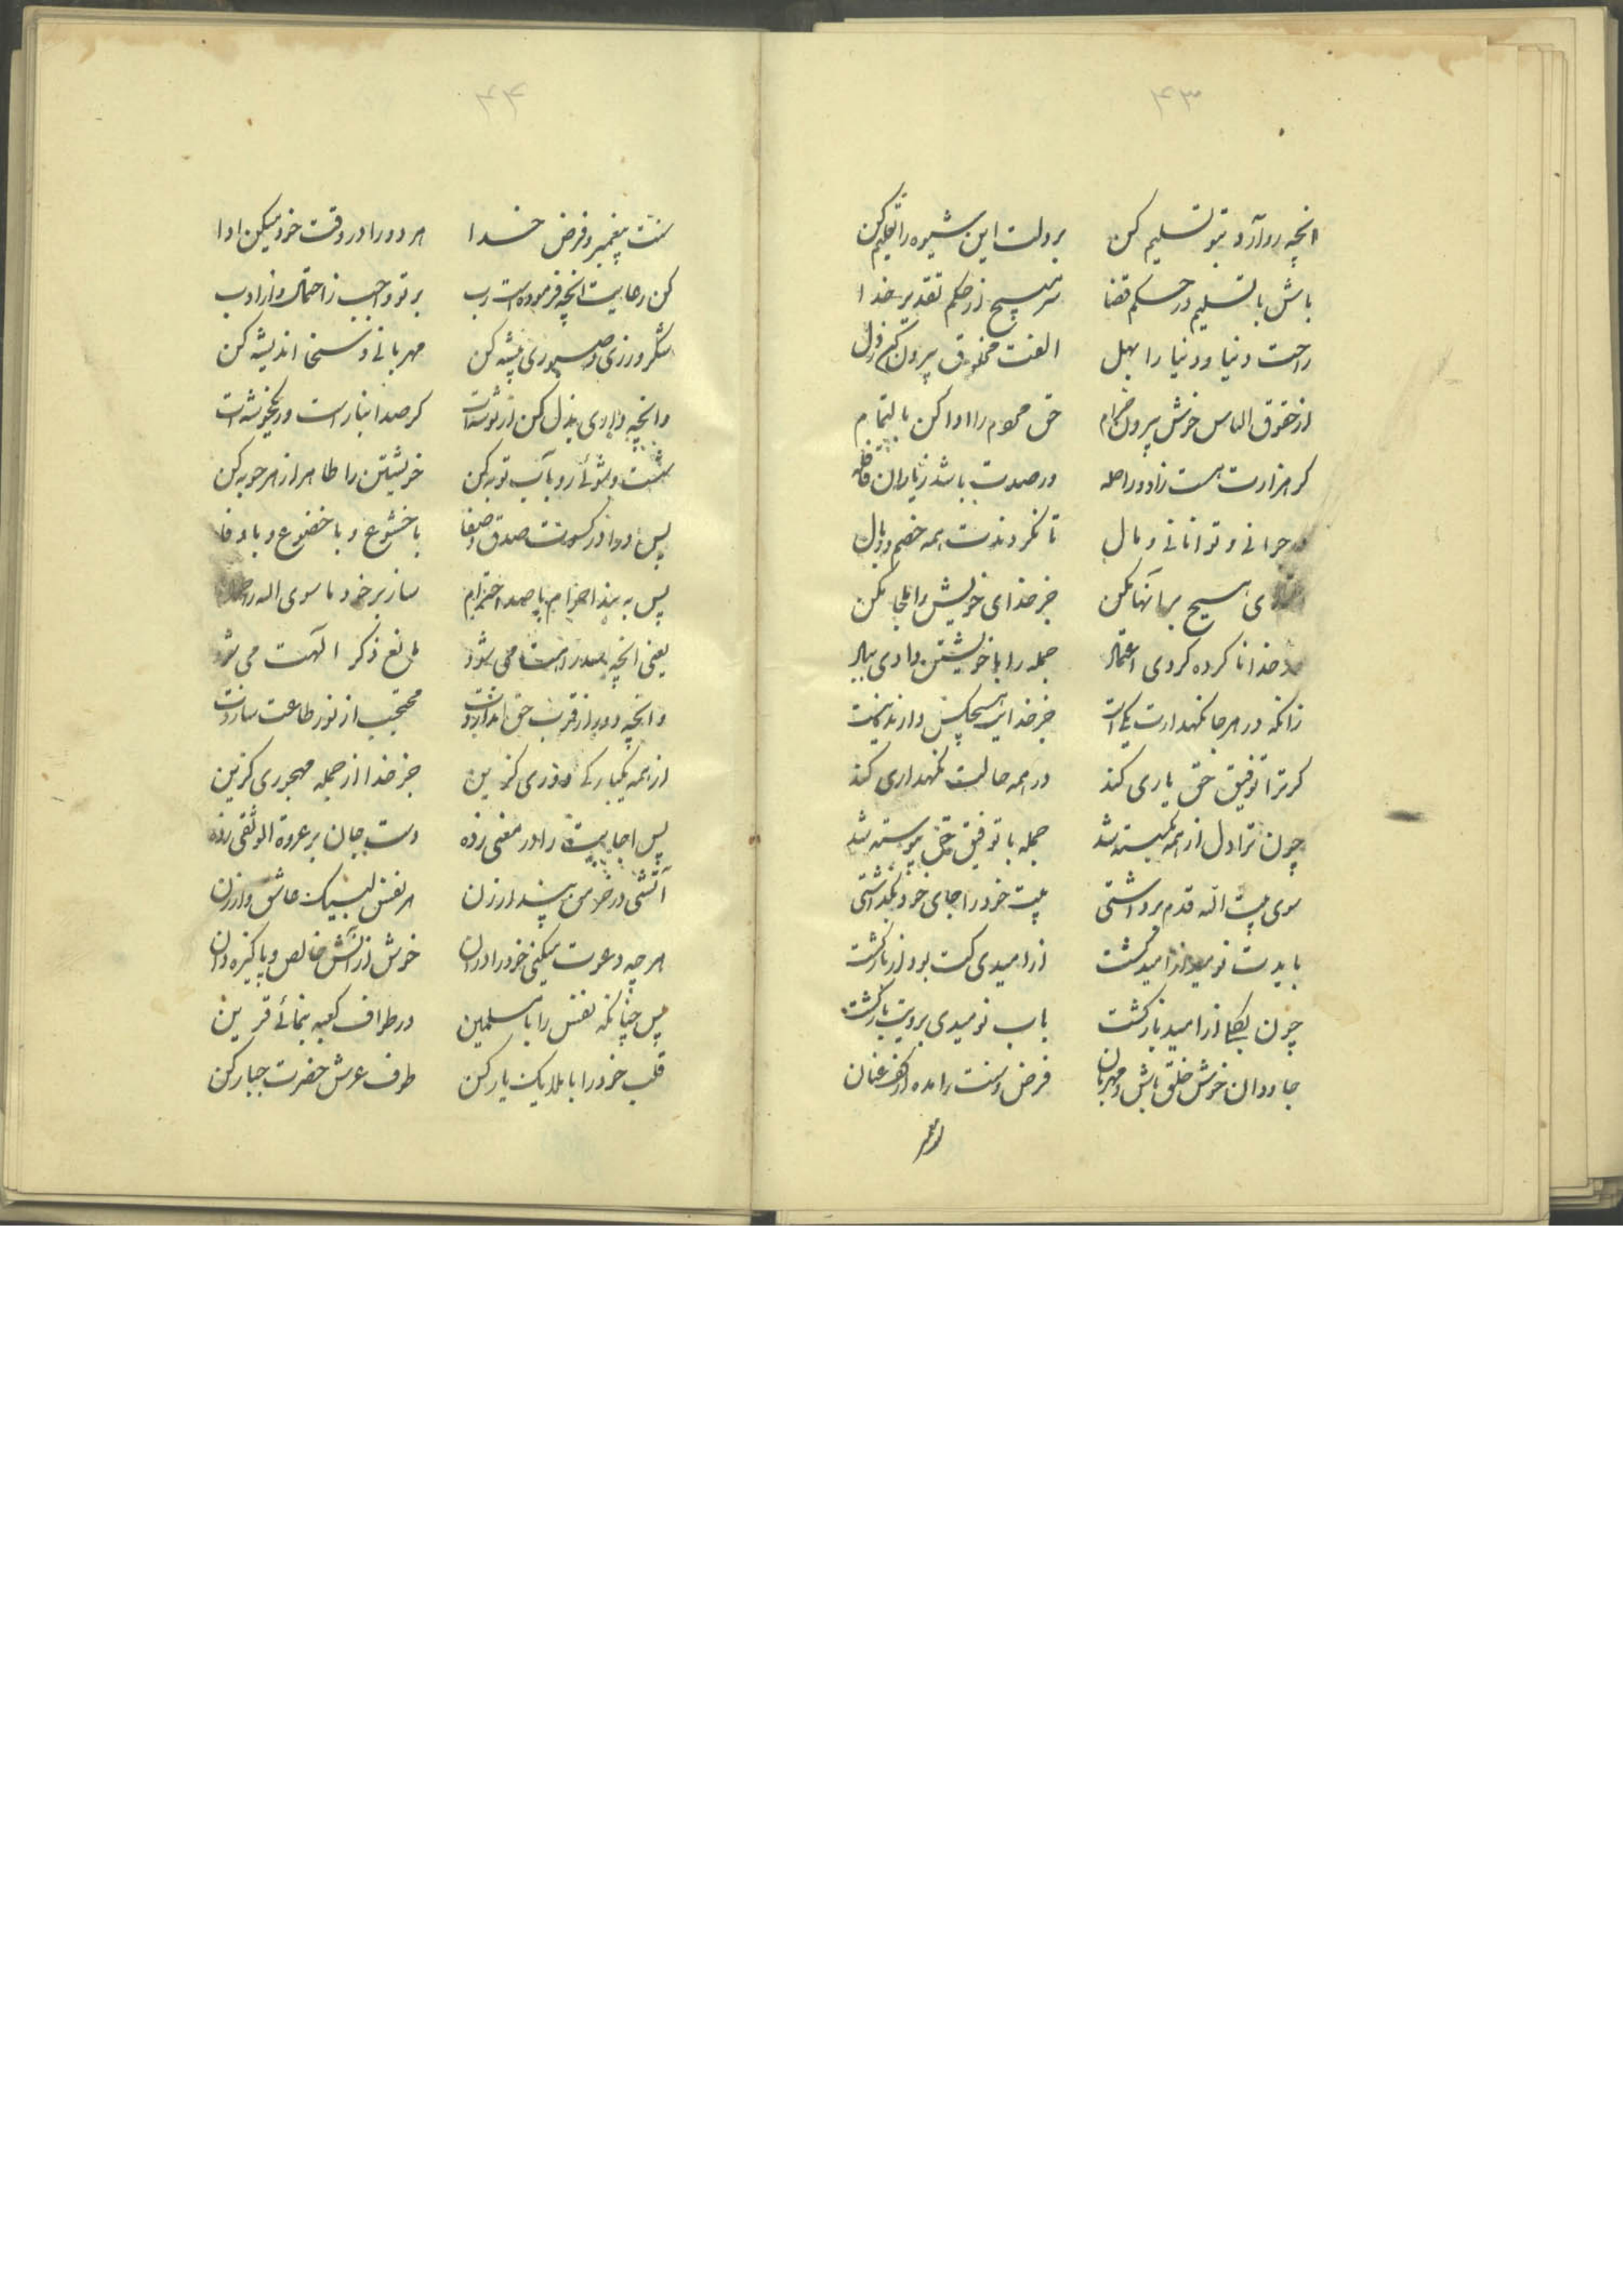 ۴۳
انچه رو آرد بتو تسلیم کن بر دلت این شیوه را تعلیم کن
باش با تسلیم در حکم قضا سر مپیچ از حکم تقدیر خدا
راحت دنیا و دنیا را بهل الفت مخلوق بیرون کن ز دل
از حقوق الناس خوش بیرون خرام حق محروم را ادا کن بالتمام
کر هزارت هست زاد و راحله ور صدت باشد ز یاران قافله
در جوانی و توانائی و مال تا نکردندت همه خصم و وبال
هیچ بر آنها مکن جز خدای خویش را ملجا مکن
خدا نا کرده کردی اعتماد جمله را با خویشتن دادی بباد
زانکه در هر جا نکهدارت یکیست جز خدایت هیچکس دارنده نیست
کر ترا توفیق حق یاری کند در همه حالت نکهداری کند
چون ترا دل از همه بکسسته شد جمله با توفیق حق پیوسته شد
سوی بیت الله قدم برداشتی بیت خود را جای خود بکذاشتی
بایدت نومید از امید کشت از امیدی کت بود از بازکشت
چون بکلی از امید بازکشت باب نومیدی برویت بازکشت
جاودان خوش خلق باش و مهربان فرض و سنت را مده از کف عنان
۴۴
سنت پیغمبر و فرض خدا هر دو را در وقت خود میکن ادا
کن رعایت انچه فرموده است رب بر تو واجب ز احتمال و از ادب
شکر ورزی و صبوری پیشه کن مهربانی و سخا اندیشه کن
وانچه داری بذل کن از توشه‌ات کر صد انبار است ور یکخوشه‌ات
شست و شوئی رو بآب توبه کن خویشتن را طاهر از هر حوبه کن
پس درا در کسوت صدق و صفا با خشوع و با خضوع و با وفا
پس به بند احرام با صد احترام ساز بر خود ما سوی الله را حرام
یعنی انچه سد راهت می شود مانع ذکر الهت می شود
وانچه دور از قرب حق انداردت محتجب از نور طاعت سازدت
از همه یکبارکی دوری کزین جز خدا از جمله مهجوری کزین
پس اجابت را در معنی زده دست جان بر عروة الوثقی زده
آتشی در خرمن پندار زن هر نفس لبیک عاشق وار زن
هر چه دعوت میکنی خود را دران خوش از آلایش خالص و پاکیزه دان
پس چنانکه نفس را با مسلمین در طواف کعبه بنمائی قرین
قلب خود را با ملایک یار کن طوف عرش حضرت جبار کن